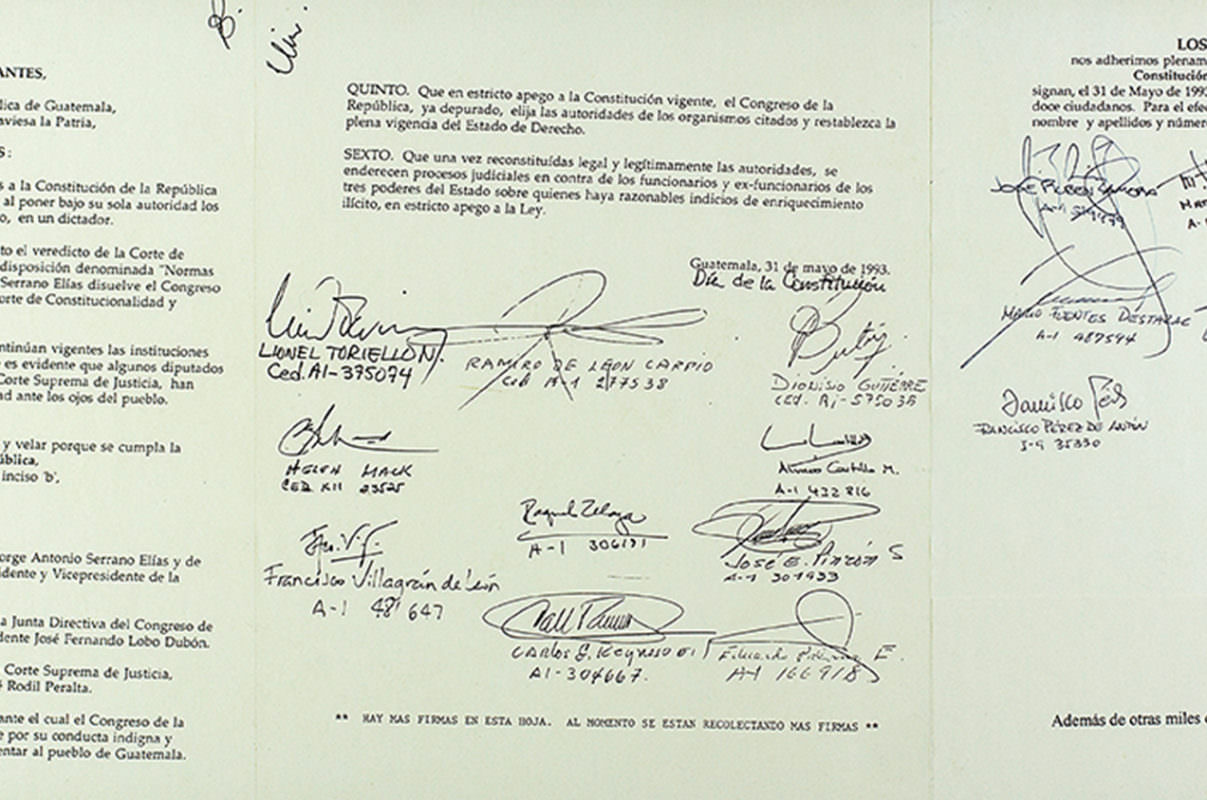 ANTES,
lica de Guatemala,
aviesa la Patria,
S:
s a la Constitución de la República
al poner bajo su sola autoridad los
o, en un dictador.
to el veredicto de la Corte de
disposición denominada "Normas
Serrano Elías disuelve el Congreso
orte de Constitucionalidad y
ntinúan vigentes las instituciones
e es evidente que algunos diputados
Corte Suprema de Justicia, han
ad ante los ojos del pueblo.
y velar porque se cumpla la
ública,
inciso 'b',
orge Antonio Serrano Elías y de
idente y Vicepresidente de la
a Junta Directiva del Congreso de
dente José Fernando Lobo Dubón.
Corte Suprema de Justicia,
é Rodil Peralta.
ante el cual el Congreso de la
e por su conducta indigna y
entar al pueblo de Guatemala.
QUINTO. Que en estricto apego a la Constitución vigente, el Congreso de la
República, ya depurado, elija las autoridades de los organismos citados y restablezca la
plena vigencia del Estado de Derecho.
SEXTO. Que una vez reconstituídas legal y legítimamente las autoridades, se
enderecen procesos judiciales en contra de los funcionarios y ex-funcionarios de los
tres poderes del Estado sobre quienes haya razonables indicios de enriquecimiento
ilícito, en estricto apego a la Ley.
Guatemala, 31 de mayo de 1993.
Día de la Constitución
LIONEL TORIELLO N.
Ced. A1-375074
RAMIRO DE LEON CARPIO
Ced A-1 277538
DIONISIO GUTIÉRRE
CED. A1-575035
HELEN MACK
CED. XII 23525
Alvaro Castillo M.
A-1 432816
Raquel Zelaya
A-1 306191
JOSÉ E. PINZÓN S
A-1 301933
Francisco Villagrán de León
A-1 481647
CARLOS E. REYNOSO G.
A1-304667.
Eduardo E.
A-1 166918
** HAY MAS FIRMAS EN ESTA HOJA. AL MOMENTO SE ESTAN RECOLECTANDO MAS FIRMAS **
LOS
nos adherimos plenam
Constitución
signan, el 31 de Mayo de 1993
doce ciudadanos. Para el efec
nombre y apellidos y número
JOSE RUBEN ZAMORA
MARIO FUENTES DESTARAC
A-1 487594
Francisco Pérez
FRANCISCO PÉREZ DE ANTÓN
I-9 35330
Además de otras miles d